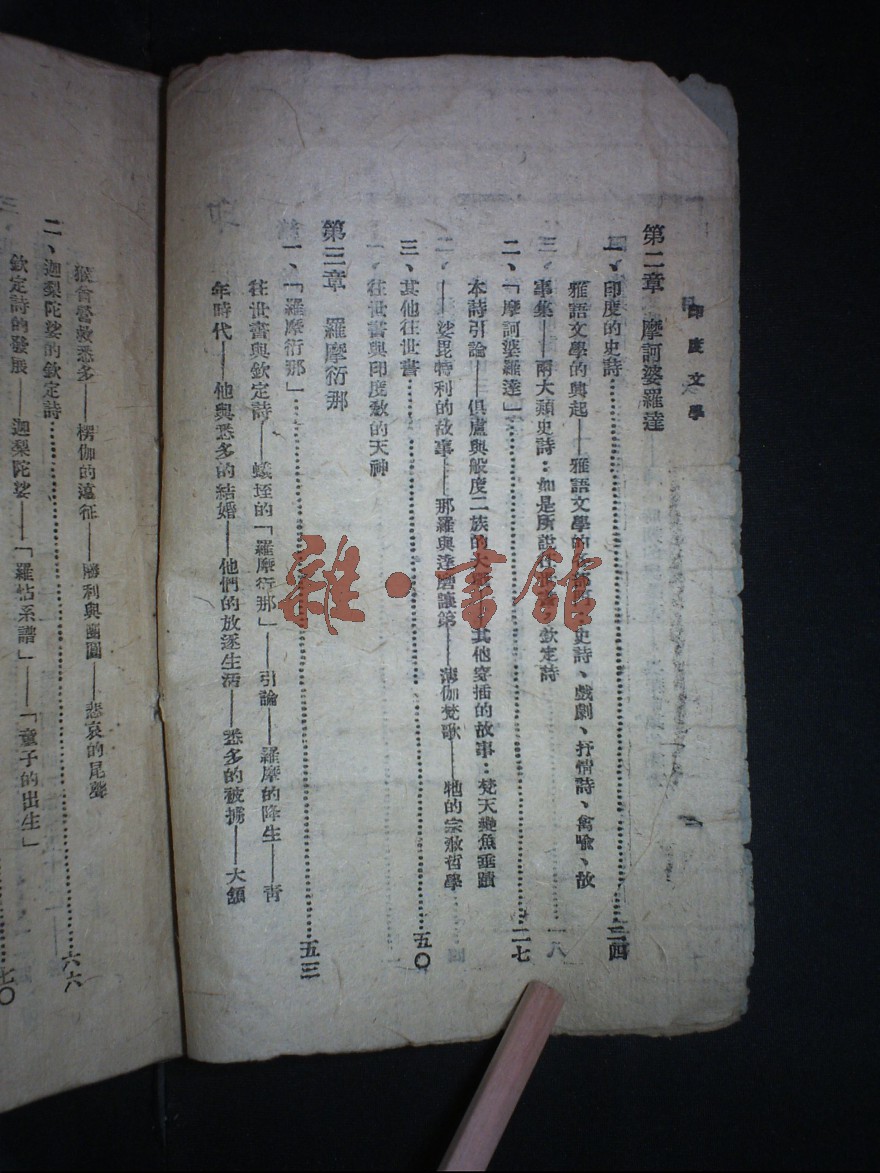 印度文學
二
第二章　摩訶婆羅達
一、印度的史詩……二四
雅語文學的興起——雅語文學的史詩、戲劇、抒情詩、寓喻、故
事集——兩大類史詩：如是所說往世書欽定詩
二、「摩訶婆羅達」……二七
本詩引論——俱盧與般度二族的大其他穿插的故事：梵天變魚垂蹟
——娑毘特利的故事——那羅與達磨讓第——薄伽梵歌——牠的宗教哲學
三、其他往世書……五〇
往世書與印度教的天神
第三章　羅摩衍那
一、「羅摩衍那」……五三
往世書與欽定詩——蟻垤的「羅摩衍那」——引論——羅摩的降生——青
年時代——他與悉多的結婚——他們的放逐生活——悉多的被擄——大頷
猴會營救悉多——楞伽的遠征——勝利與團圓——悲哀的尾聲
二、迦梨陀娑的欽定詩……六六
欽定詩的發展——迦梨陀娑——「羅怙系譜」——「童子的出生」
七〇
雜·書館